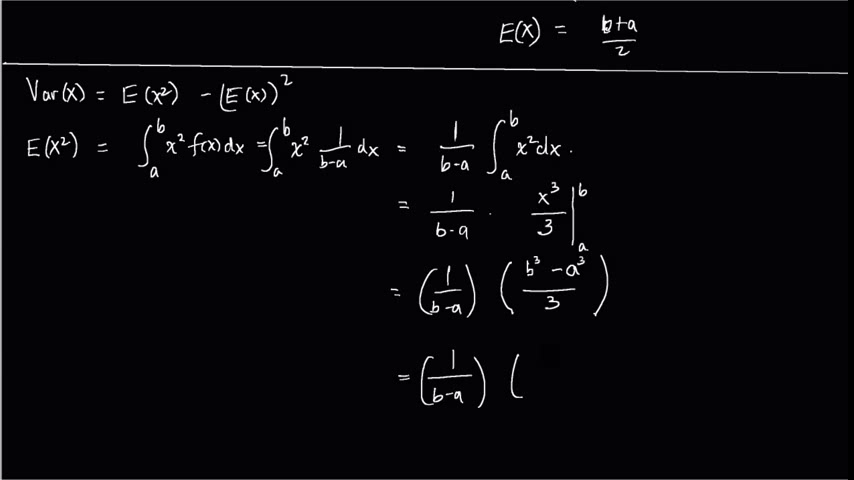 E(X) = b+a/2
Var(X) = E(X²) - (E(X))²
E(X²) = ∫ₐᵇ x² f(x) dx = ∫ₐᵇ x² 1/b-a dx = 1/b-a ∫ₐᵇ x² dx.
= 1/b-a · x³/3 |ₐᵇ
= (1/b-a) (b³ - a³/3)
= (1/b-a) (